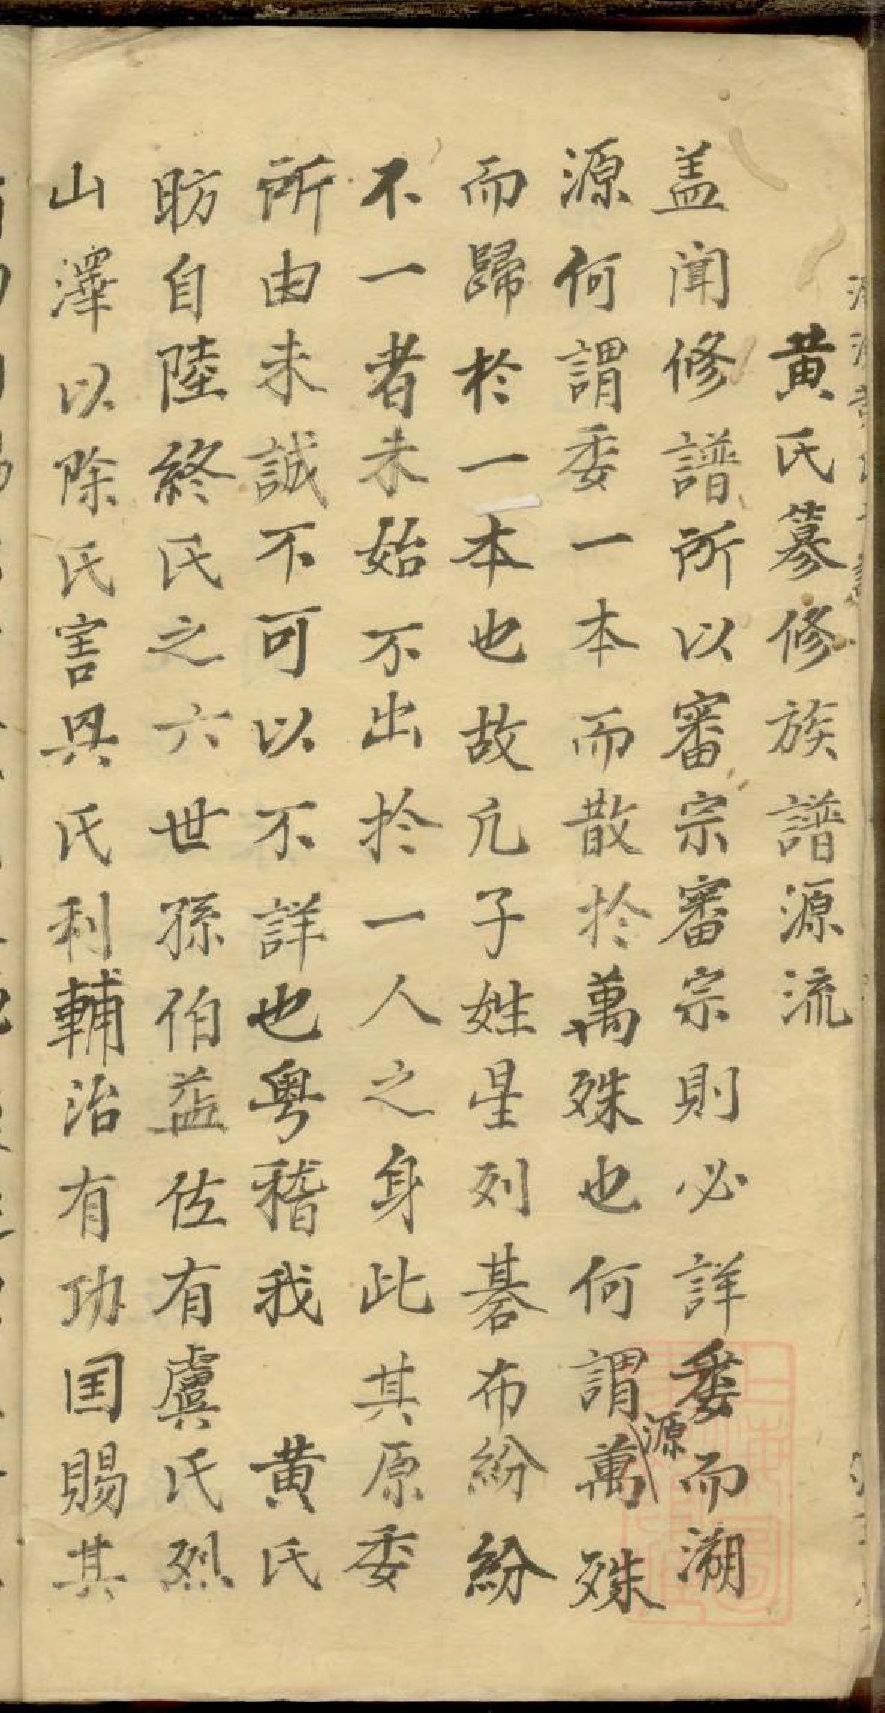 黃氏纂修族譜源流
盖聞修譜所以審宗審宗則必詳委而溯
源何謂委一本而散扵萬殊也何謂源萬殊
而歸扵一本也故凢子姓星列碁布紛紛
不一者未始不出扵一人之身此其原委
所由未誠不可以不詳也粤稽我 黃氏
昉自陸終氏之六世孫伯益佐有虞氏烈
山澤以除民害具民利輔治有功囯賜其